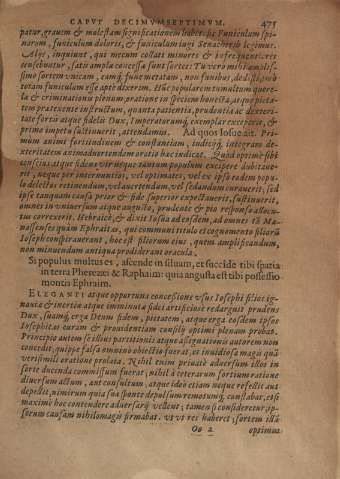 CAPVT DECIMVMSEPTIMVM. 475
patur, grauem & molestam significationem habet sic Funiculum spi-
narum, funiculum doloris, & funiculum iugi Senacherib legimur.
Alijs, inquiunt, qui mecum collati minores & infrequentiores
censebuntur, satis ampla concessa sunt sortes: Tu vero mihi amplis-
simo sortem vnicam, eamq́ fune metatam, non funibus, dedisti, quo
totam funiculum esse apte dixerim. Huc popularem tumultum quere-
la & criminationis plenum ratione in speciem honesta, atque pieta-
tem prætexente instructum, quanta patientia, prudentia ac dexteri-
tate fortis atque fidelis Dux, Imperatorumq́ exemplar exceperit, &
primo impetu sustinuerit, attendamus. Ad quos Iosue ait. Pri-
mum animi fortitudinem & constantiam, indicijq́ integram de-
xteritatem animaduertendam oratio hæc indicat. Quod optime sibi
conscius atque fidus vir neque tantum populum excipere dubitaue-
rit, neque per internuntios, vel optimates, vel ex ipso eodem popu-
lo delectos retinendum, vel auertendum, vel sedandum curauerit, sed
ipse tanquam causa prior & fide superior expectauerit, sustinuerit,
omnes ad vniuersum atque augusta, prudente & pio responso allocu-
tus correxerit. Hebraicè, & dixit Iosua ad eosdem, ad omnes id Ma-
nassenses quàm Ephraitas, qui communi titulo et cognomento filiorū
Ioseph conspirauerant, hoc est filiorum eius, quem amplificandum,
non minuendum antiqua prodiderant oracula.
Si populus multus es, ascende in siluam, et succide tibi spatia
in terra Pherezæi & Raphaim: quia angusta est tibi possessio
montis Ephraim.
ELEGANTI atque opportuna concessione vsus Iosephi filios igna-
uiæ & inertiæ atque imminutæ fidei artificiosè redarguit prudens
Dux, suamq́, erga Deum fidem, pietatem, atque erga eosdem ipsos
Iosephitas curam & prouidentiam consilij optimi plenam probat.
Principio autem se illius partitionis atque assignationis autorem non
concedit, quippe falsa omnino obiectio fuerat, et inuidiosa magis quā
verisimili oratione prolata. Nihil enim priuatè aduersum illos in
sorte ducenda commissum fuerat, nihil à ceterarum sortium ratione
diuersum actum, aut consultum, atque ideò etiam neque refellit aut
depellit, nimirum quia sua sponte depulsum remotumq́, constabat, etsi
maximè hoc contendere aduersarij vellent; tamen si consideretur, ip-
sorum causam nihilo magis firmabat. vt vt res haberet, sortem illā
Oo 2 optimus